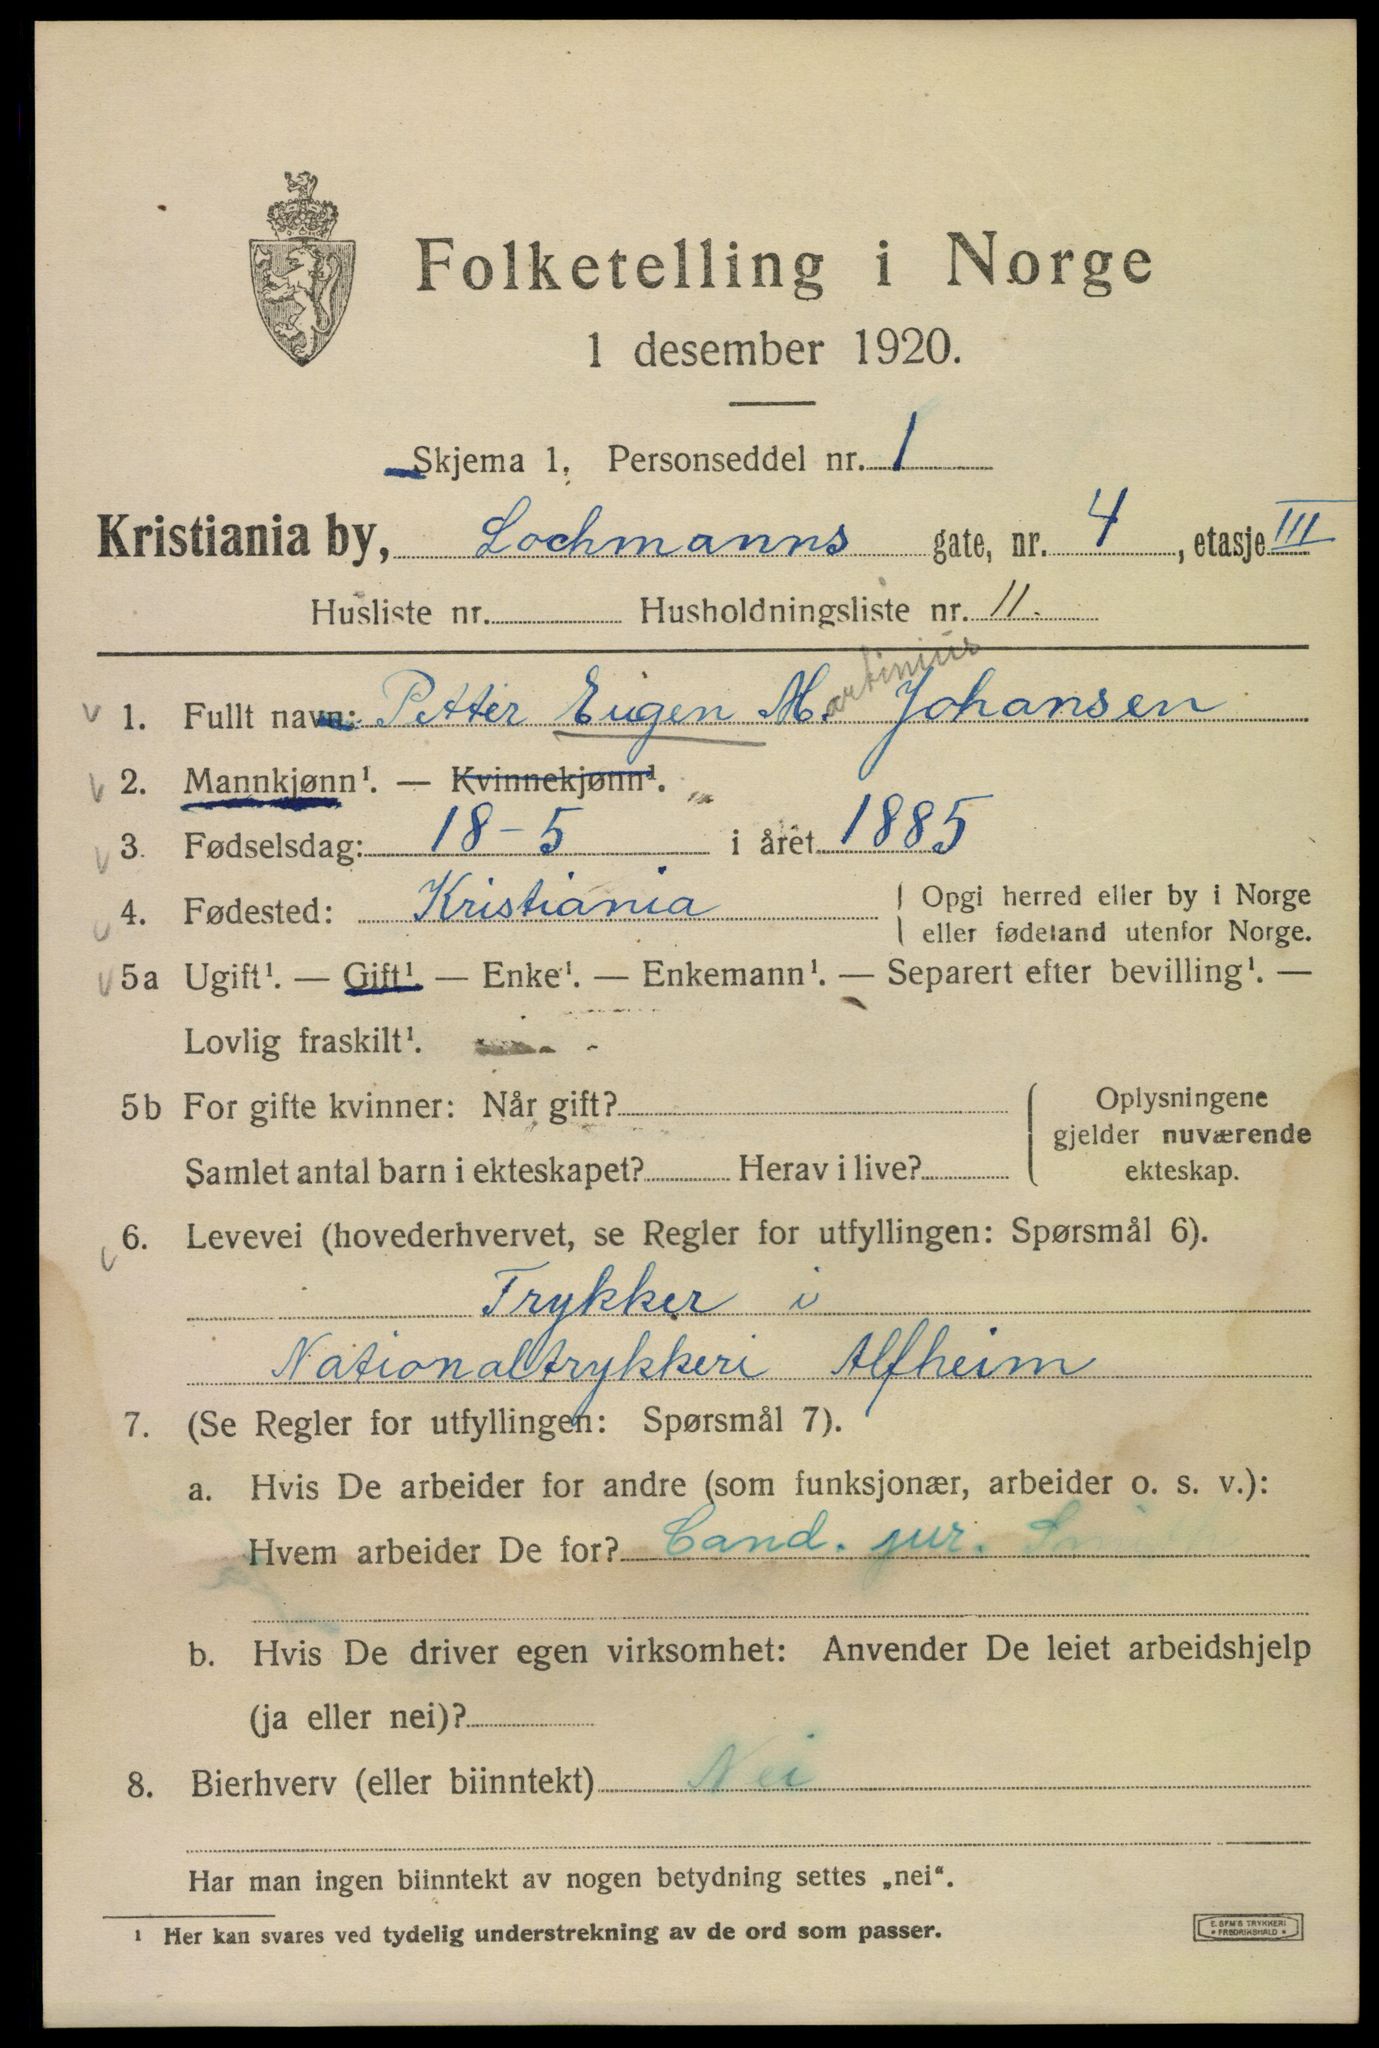 Folketelling i Norge
1 desember 1920.
Skjema 1. Personseddel nr. 1
Kristiania by, Lochmanns gate, nr. 4, etasje III
Husliste nr. Husholdningsliste nr. 11.
artinius
1. Fullt navn: Petter Eugen M. Johansen
2. Mannkjønn¹. — Kvinnekjønn¹.
3. Fødselsdag: 18-5 i året 1885
4. Fødested: Kristiania Opgi herred eller by i Norge
eller fødeland utenfor Norge.
5a Ugift¹. — Gift¹. — Enke¹. — Enkemann¹. — Separert efter bevilling¹. —
Lovlig fraskilt¹.
5b For gifte kvinner: Når gift? Oplysningene
gjelder nuværende
Samlet antal barn i ekteskapet? Herav i live? ekteskap.
6. Levevei (hovederhvervet, se Regler for utfyllingen: Spørsmål 6).
Trykker i
Nationaltrykkeri Alfheim
7. (Se Regler for utfyllingen: Spørsmål 7).
a. Hvis De arbeider for andre (som funksjonær, arbeider o. s. v.):
Hvem arbeider De for? Cand. jur. Smith
b. Hvis De driver egen virksomhet: Anvender De leiet arbeidshjelp
(ja eller nei)?
8. Bierhverv (eller biinntekt) Nei
Har man ingen biinntekt av nogen betydning settes „nei“.
¹ Her kan svares ved tydelig understrekning av de ord som passer.
E. SEM'S TRYKKERI
* FREDRIKSHALD *